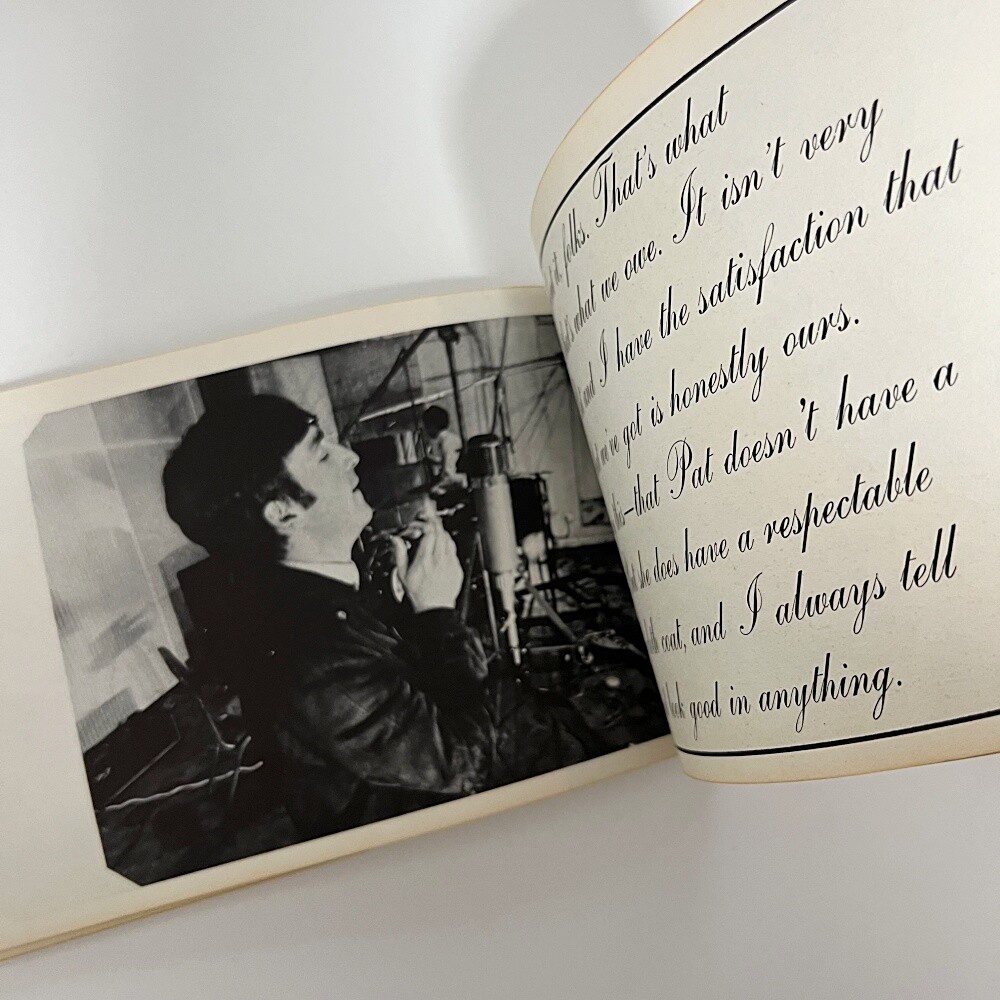 it, folks. That's what
what we owe. It isn't very
and I have the satisfaction that
we've got is honestly ours.
this—that Pat doesn't have a
she does have a respectable
coat, and I always tell
look good in anything.